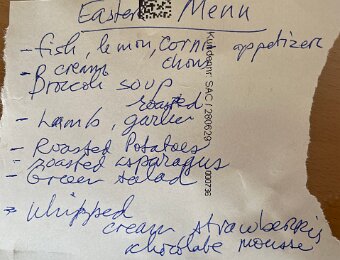 Easter Menu
- fish, lemon, corn appetizer
chow
- cream
Broccoli soup
roasted
- Lamb, garlic
- Roasted Potatoes
- roasted asparagus
- Green salad
- Whipped
cream strawberris
chocolate mousse
Kundennr: SAC / 280629
000736